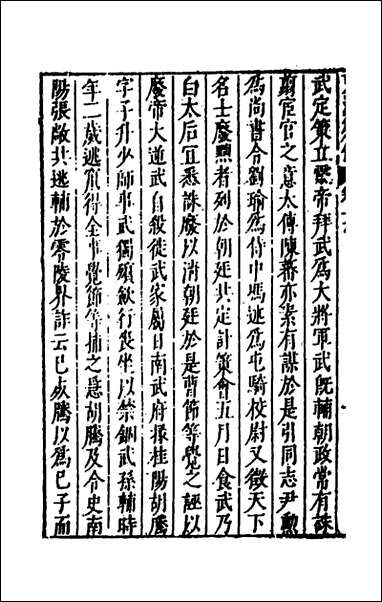 武定策立靈帝拜武爲大將軍武旣輔朝政常有誅
翦宦官之意太傅陳蕃亦素有謀於是引同志尹勲
爲尚書令劉瑜爲侍中馮述爲屯騎校尉又徵天下
名士廢黜者列於朝廷共定計策會五月日食武乃
白太后宜悉誅廢以清朝廷於是曹節等覺之誣以
廢帝大道武自殺徙武家屬日南武府掾桂陽胡騰
字子升少師事武獨殯歛行喪坐以禁錮武孫輔時
年二歲逃竄得全事覺節等捕之急胡騰及令史南
陽張敞共逃輔於零陵界詐云已死騰以爲已子而